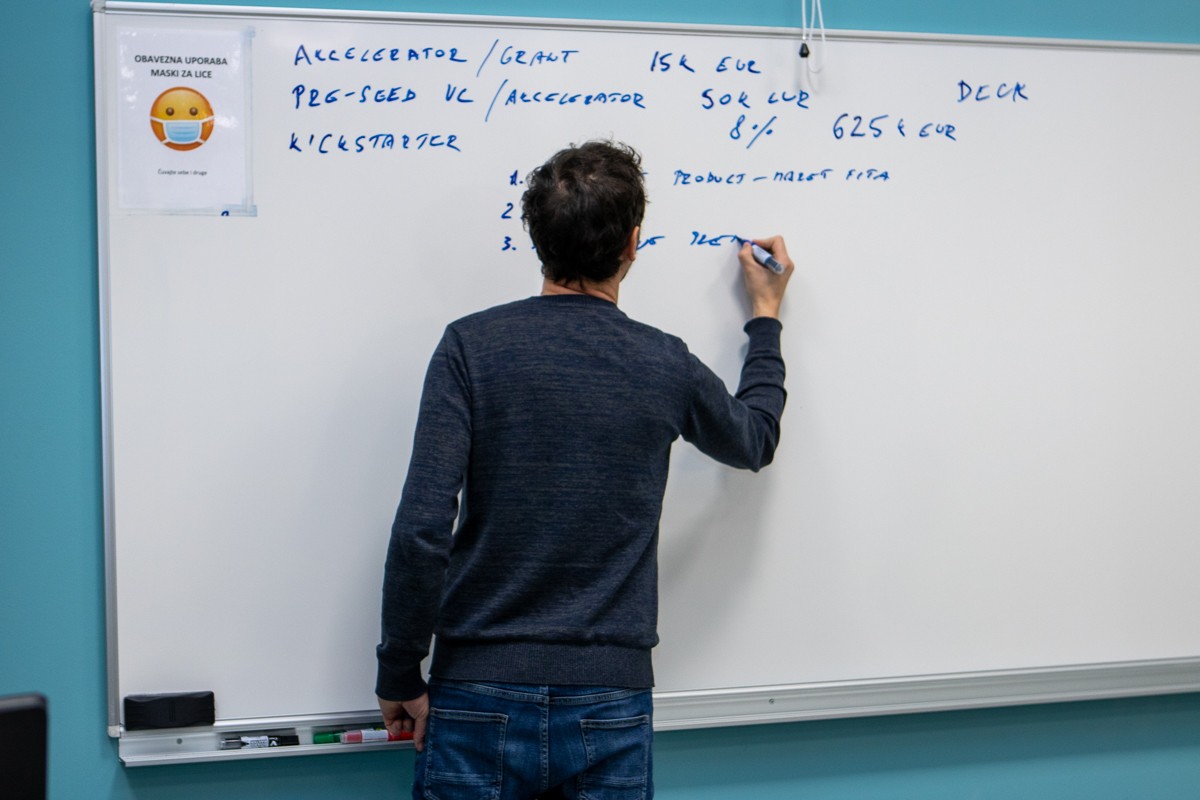 OBAVEZNA UPORABA
MASKI ZA LICE
Čuvajte sebe i druge
AKCELERATOR / GRANT 15K EUR
PRE-SEED VC / AKCELERATOR 50K EUR DECK
8% 625K EUR
KICKSTARTER
1. PRODUCT-MARKET FITA
2
3.